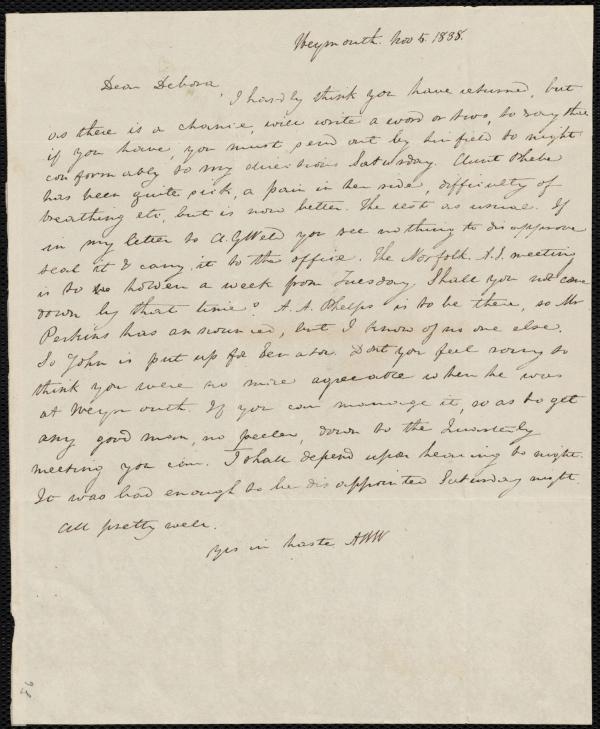 Weymouth. Nov 5. 1838.
Dear Debora,
I hardly think you have returned, but
as there is a chance, will write a word or two, to say that
if you have, you must send out by Linfield to night
conformably to my directions Saturday. Aunt Phebe
has been quite sick, a pain in her side, difficulty of
breathing etc, but is now better. The rest as usual. If
in my letter to A. G Weld you see nothing to disapprove
seal it & carry it to the office. The Norfolk A.S. meeting
is to be holden a week from Tuesday. Shall you not come
down by that time? A. A. Phelps is to be there, so Mr
Perkins has announced, but I know of no one else.
So John is put up for Senator. Don't you feel sorry to
think you were no more agreeable when he was
at Weymouth. If you can manage it, so as to get
any good man, no peeler, down to the Quarterly
meeting you can. I shall depend upon hearing to night.
It was bad enough to be disappointed Saturday night.
All pretty well.
Yrs in haste AWW